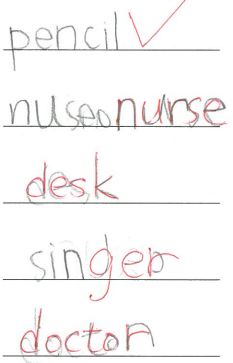 pencil
nuseonurse
desk
singer
doctor